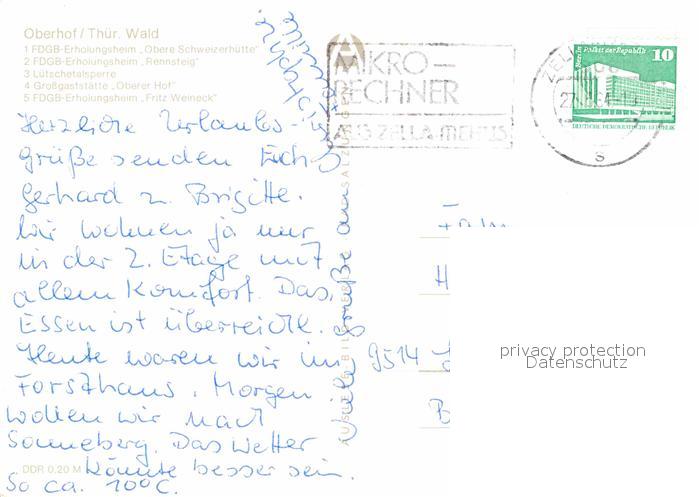 Oberhof / Thür. Wald
1 FDGB-Erholungsheim „Obere Schweizerhütte"
2 FDGB-Erholungsheim „Rennsteig"
3 Lütschetalsperre
4 Großgaststätte „Oberer Hof"
5 FDGB-Erholungsheim „Fritz Weineck"
Herzliche Urlaubs-
grüße senden Euch
Gerhard u. Brigitte.
Wir wohnen ja nur
in der 2. Etage mit
allem Komfort. Das
Essen ist überreichl.
Heute waren wir im
Forsthaus. Morgen
wollen wir nach
Sonneberg. Das Wetter
könnte besser sein.
So ca. 10°C.
DDR 0,20 M
Viele Grüße an
MIKRO-
RECHNER
AUS ZELLA-MEHLIS
ZELLA
Palast der Republik
10
DEUTSCHE DEMOKRATISCHE REPUBLIK
H
9514
B
privacy protection
Datenschutz